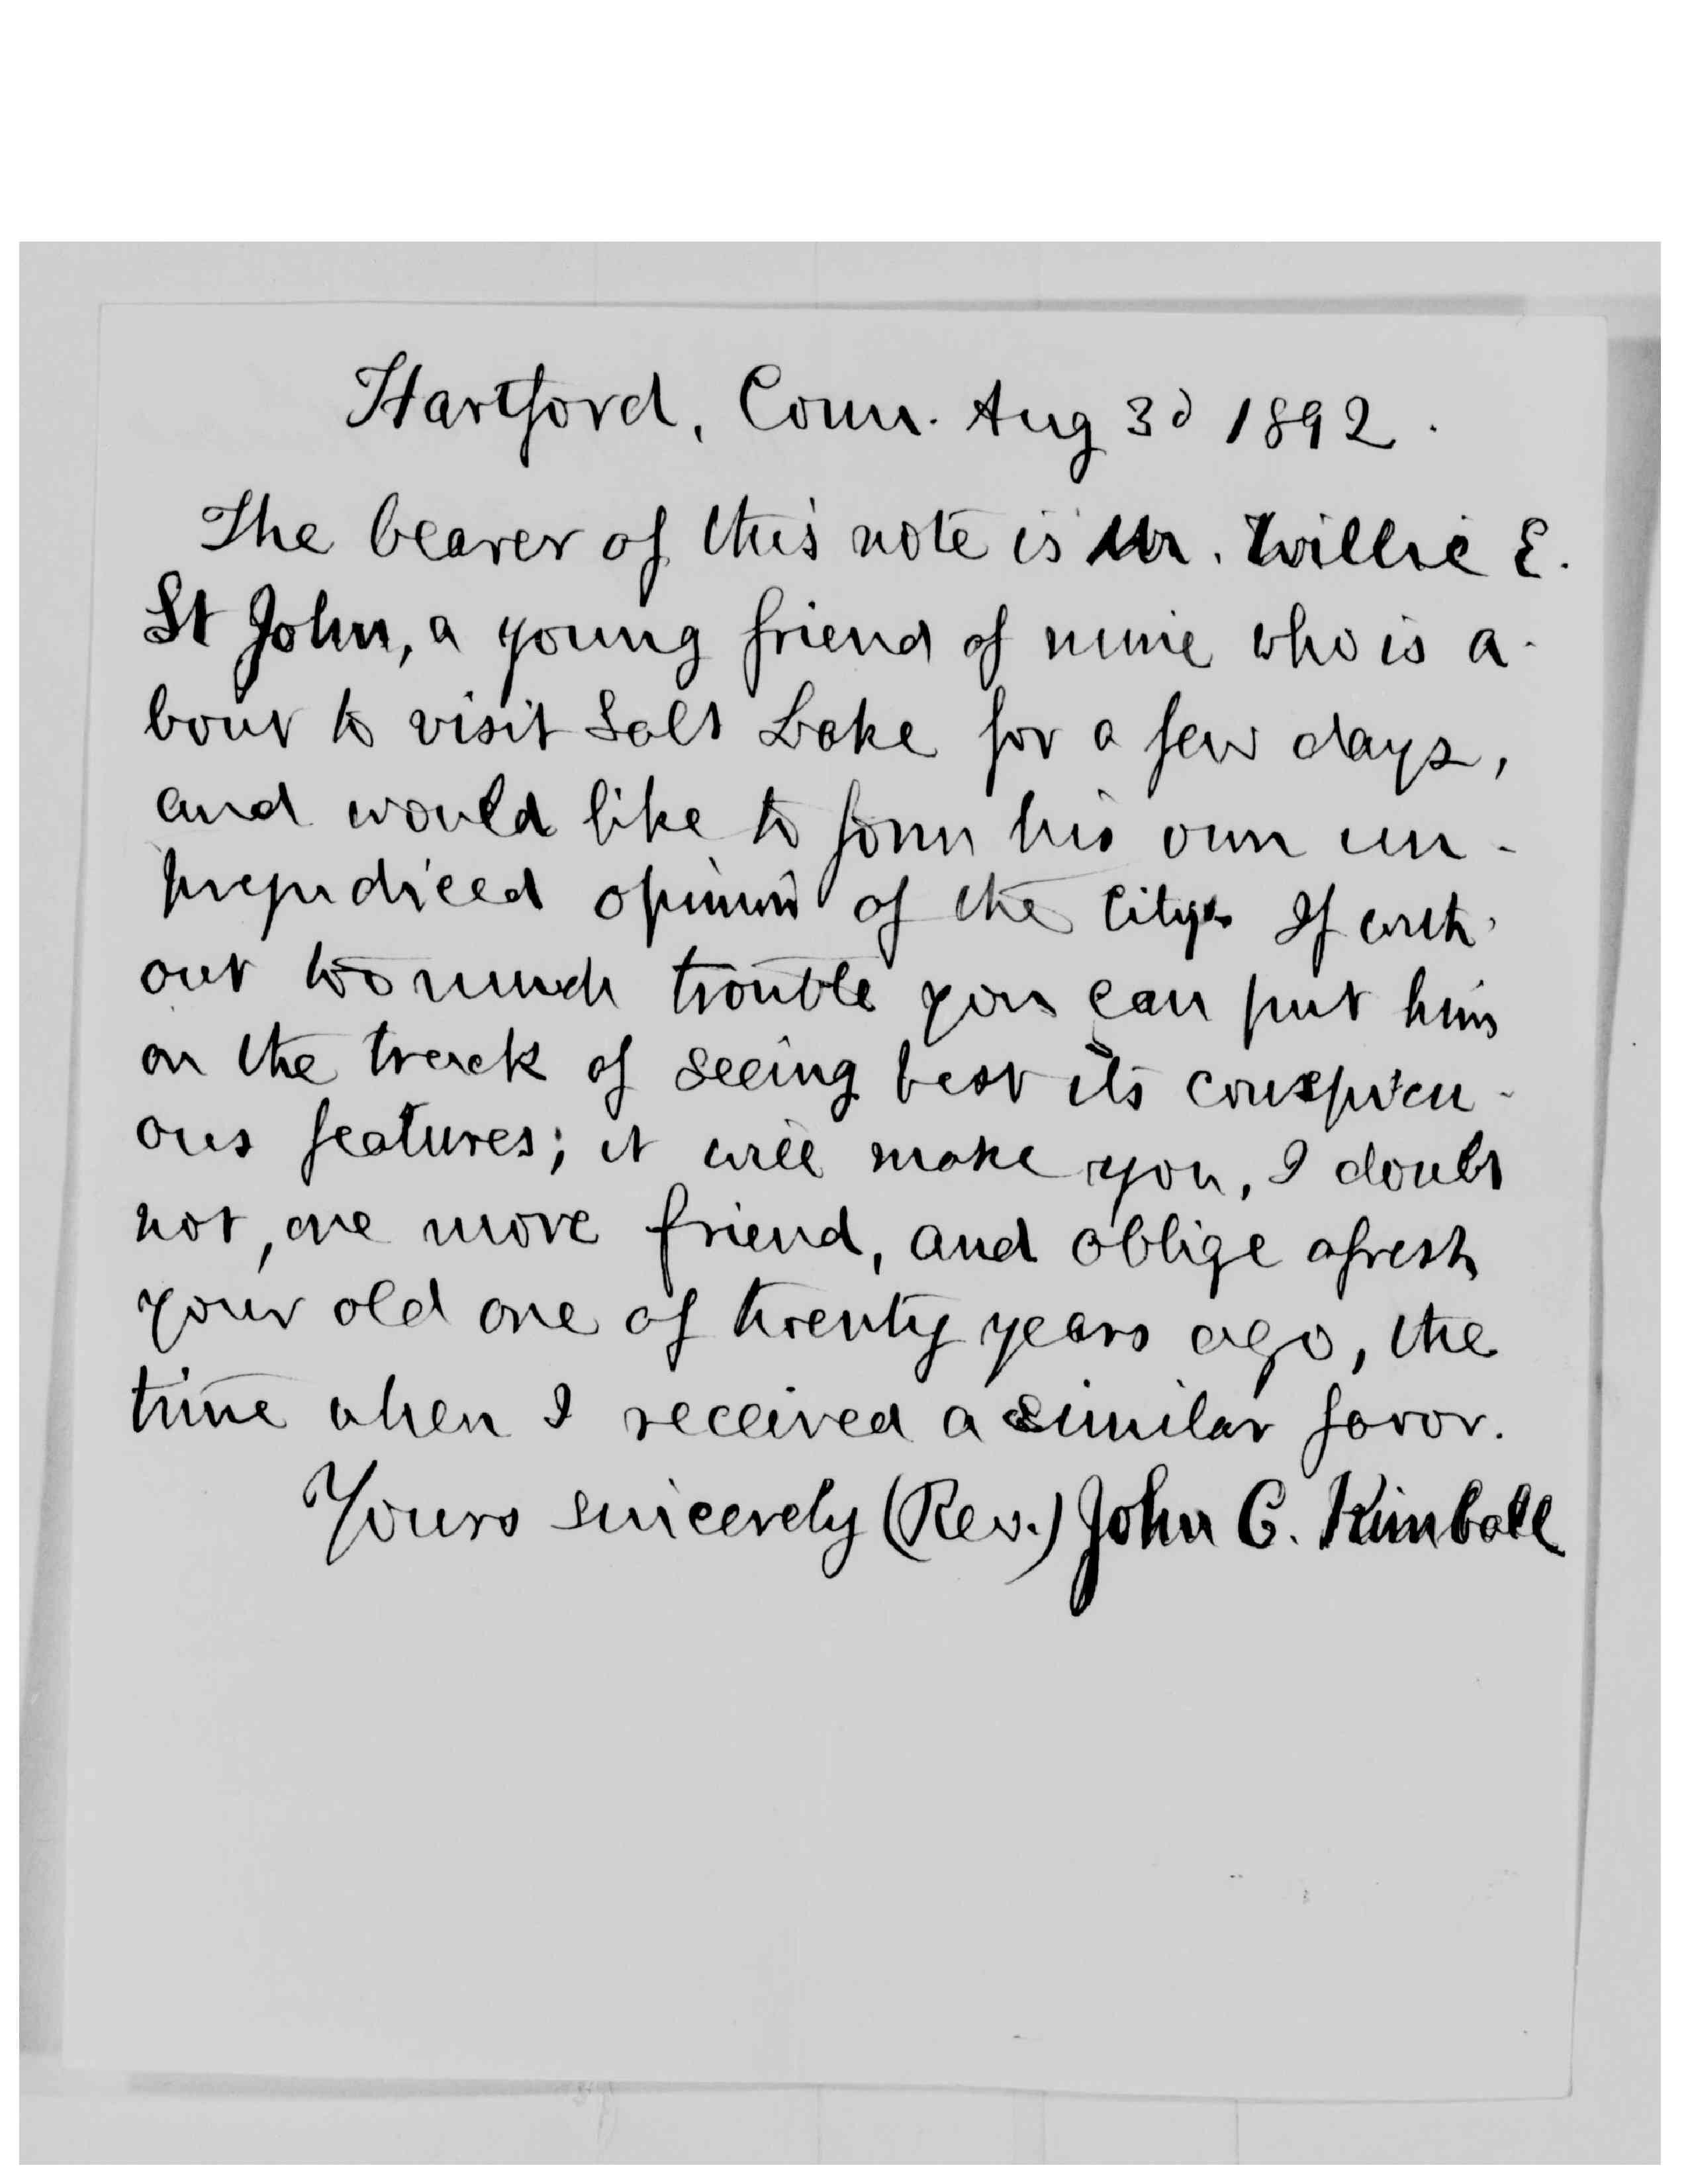 Hartford, Conn. Aug 3d 1892.
The bearer of this note is Mr. Willie E.
St John, a young friend of mine who is a-
bout to visit Salt Lake for a few days,
and would like to form his own un-
prejudiced opinion of the City. If with-
out too much trouble you can put him
on the track of seeing best its conspicu-
ous features; it will make you, I doubt
not, one more friend, and oblige afresh
your old one of twenty years ago, the
time when I received a similar favor.
Yours sincerely (Rev.) John C. Kimball